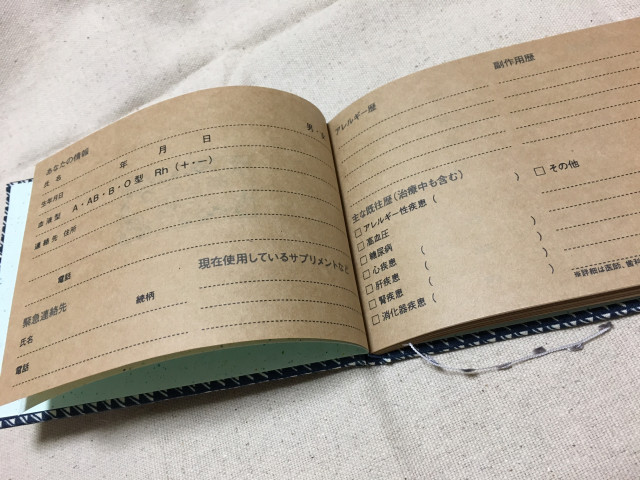 あなたの情報
氏名
男・
生年月日 年 月 日
血液型 A・AB・B・O型 Rh（＋・－）
連絡先 住所
電話
緊急連絡先
氏名 続柄
電話
現在使用しているサプリメントなど
アレルギー歴
副作用歴
主な既往歴（治療中も含む）
□ アレルギー性疾患（ ）
□ 高血圧
□ 糖尿病
□ 心疾患 （ ）
□ 肝疾患 （ ）
□ 腎疾患 （ ）
□ 消化器疾患（ ）
□ その他
※詳細は医師、歯科